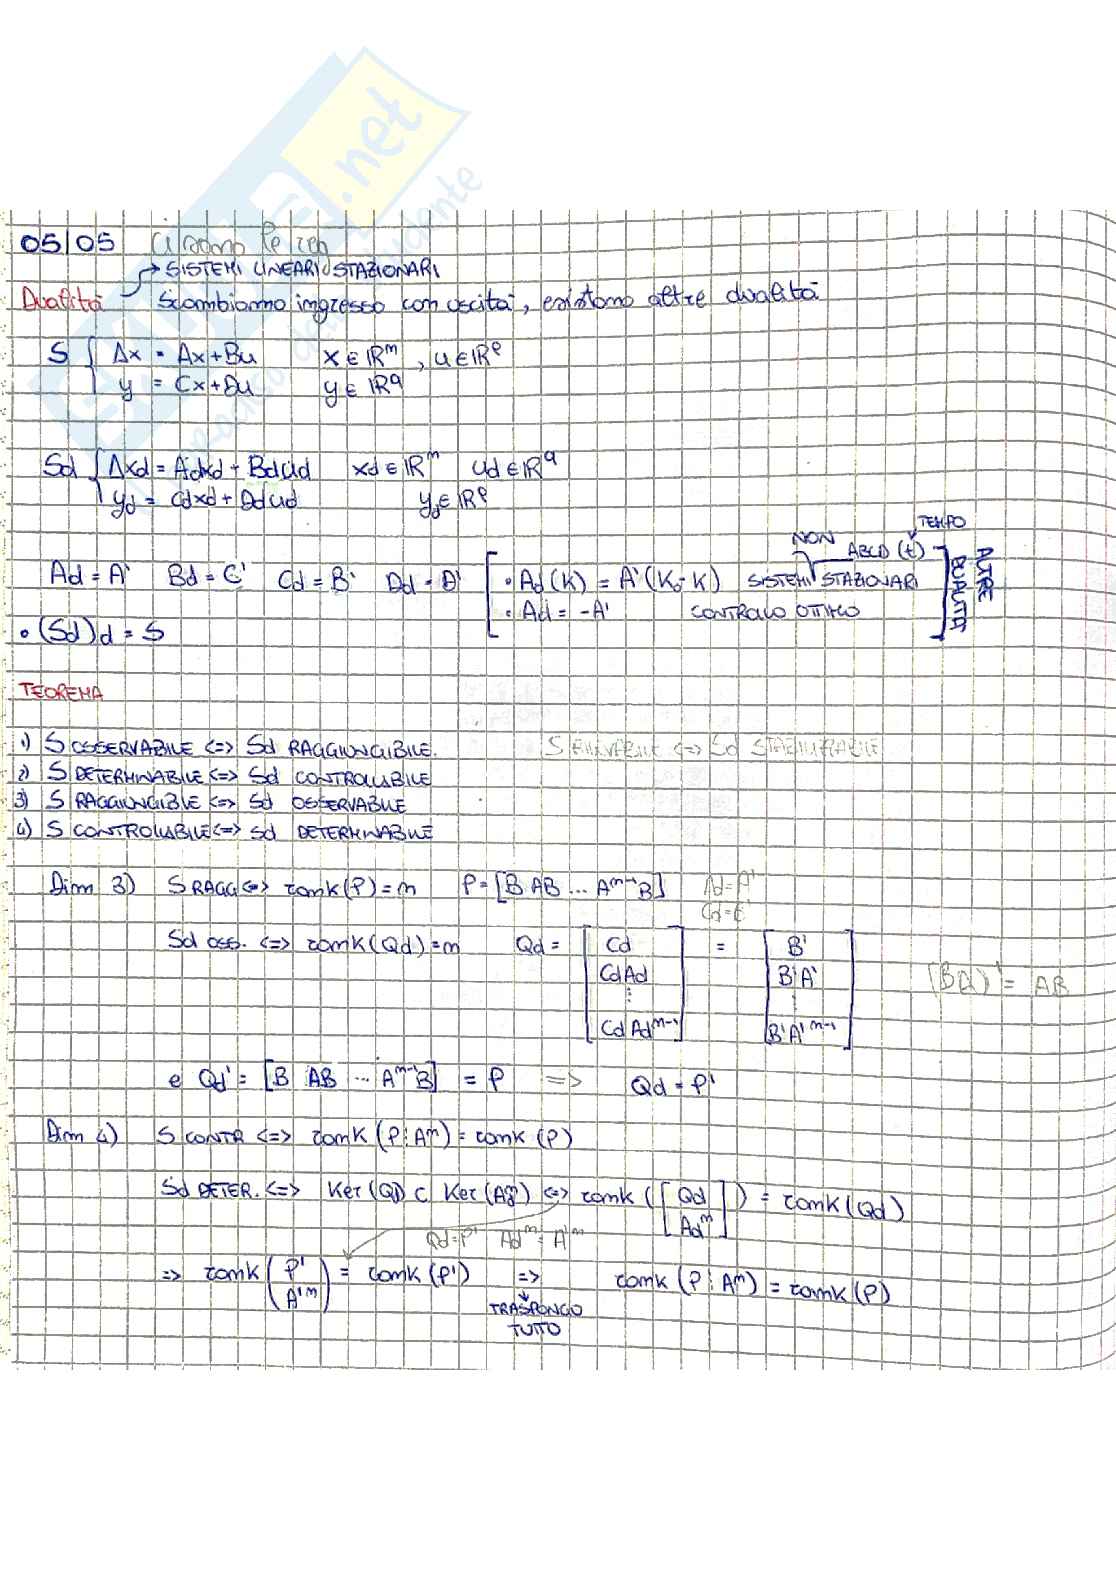 05/05 Ci sono le
→ SISTEMI LINEARI STAZIONARI
Dualità Scambiamo ingresso con uscita, esistono altre dualità
S { Δx = Ax + Bu x ∈ ℝⁿ, u ∈ ℝᵖ
y = Cx + Du y ∈ ℝ^q
Sd { Δxd = Adxd + Bdud xd ∈ ℝⁿ ud ∈ ℝ^q
yd = Cdxd + Ddud yd ∈ ℝᵖ
Ad = A' Bd = C' Cd = B' Dd = D' [ • Ad(K) = A'(K₀-K) SISTEMI NON STAZIONARI ABCD (t) TEMPO
• Ad = -A' CONTROLLO OTTIMO ] ALTRE DUALITÀ
• (Sd)d = S
TEOREMA
1) S OSSERVABILE <=> Sd RAGGIUNGIBILE. S RILEVABILE <=> Sd STABILIZZABILE
2) S DETERMINABILE <=> Sd CONTROLLABILE
3) S RAGGIUNGIBILE <=> Sd OSSERVABILE
4) S CONTROLLABILE <=> Sd DETERMINABILE
Dim 3) S RAGG <=> rank(P) = n P = [B AB ... Aⁿ⁻¹B] Ad = A'
Cd = B'
Sd oss. <=> rank(Qd) = n Qd = [ Cd = [ B'
CdAd B'A' (BA)' = AB
⋮ ⋮
CdAdⁿ⁻¹ ] B'A'ⁿ⁻¹ ]
e Qd' = [B AB ... Aⁿ⁻¹B] = P => Qd = P'
Dim 4) S CONTR <=> rank(P ⋮ Aⁿ) = rank(P)
Sd DETER. <=> Ker(Qd) ⊂ Ker(Adⁿ) <=> rank([ Qd
Adⁿ ]) = rank(Qd)
Qd = P' Adⁿ = A'ⁿ
=> rank( P'
A'ⁿ ) = rank(P') => rank(P ⋮ Aⁿ) = rank(P)
TRASPONGO
TUTTO